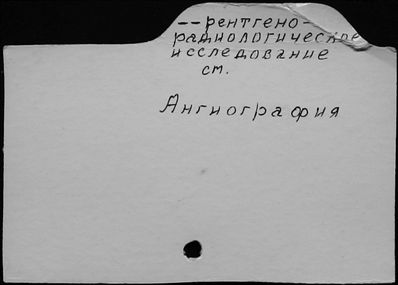 --рентгено-
радиологическое
исследование
см.
Ангиография